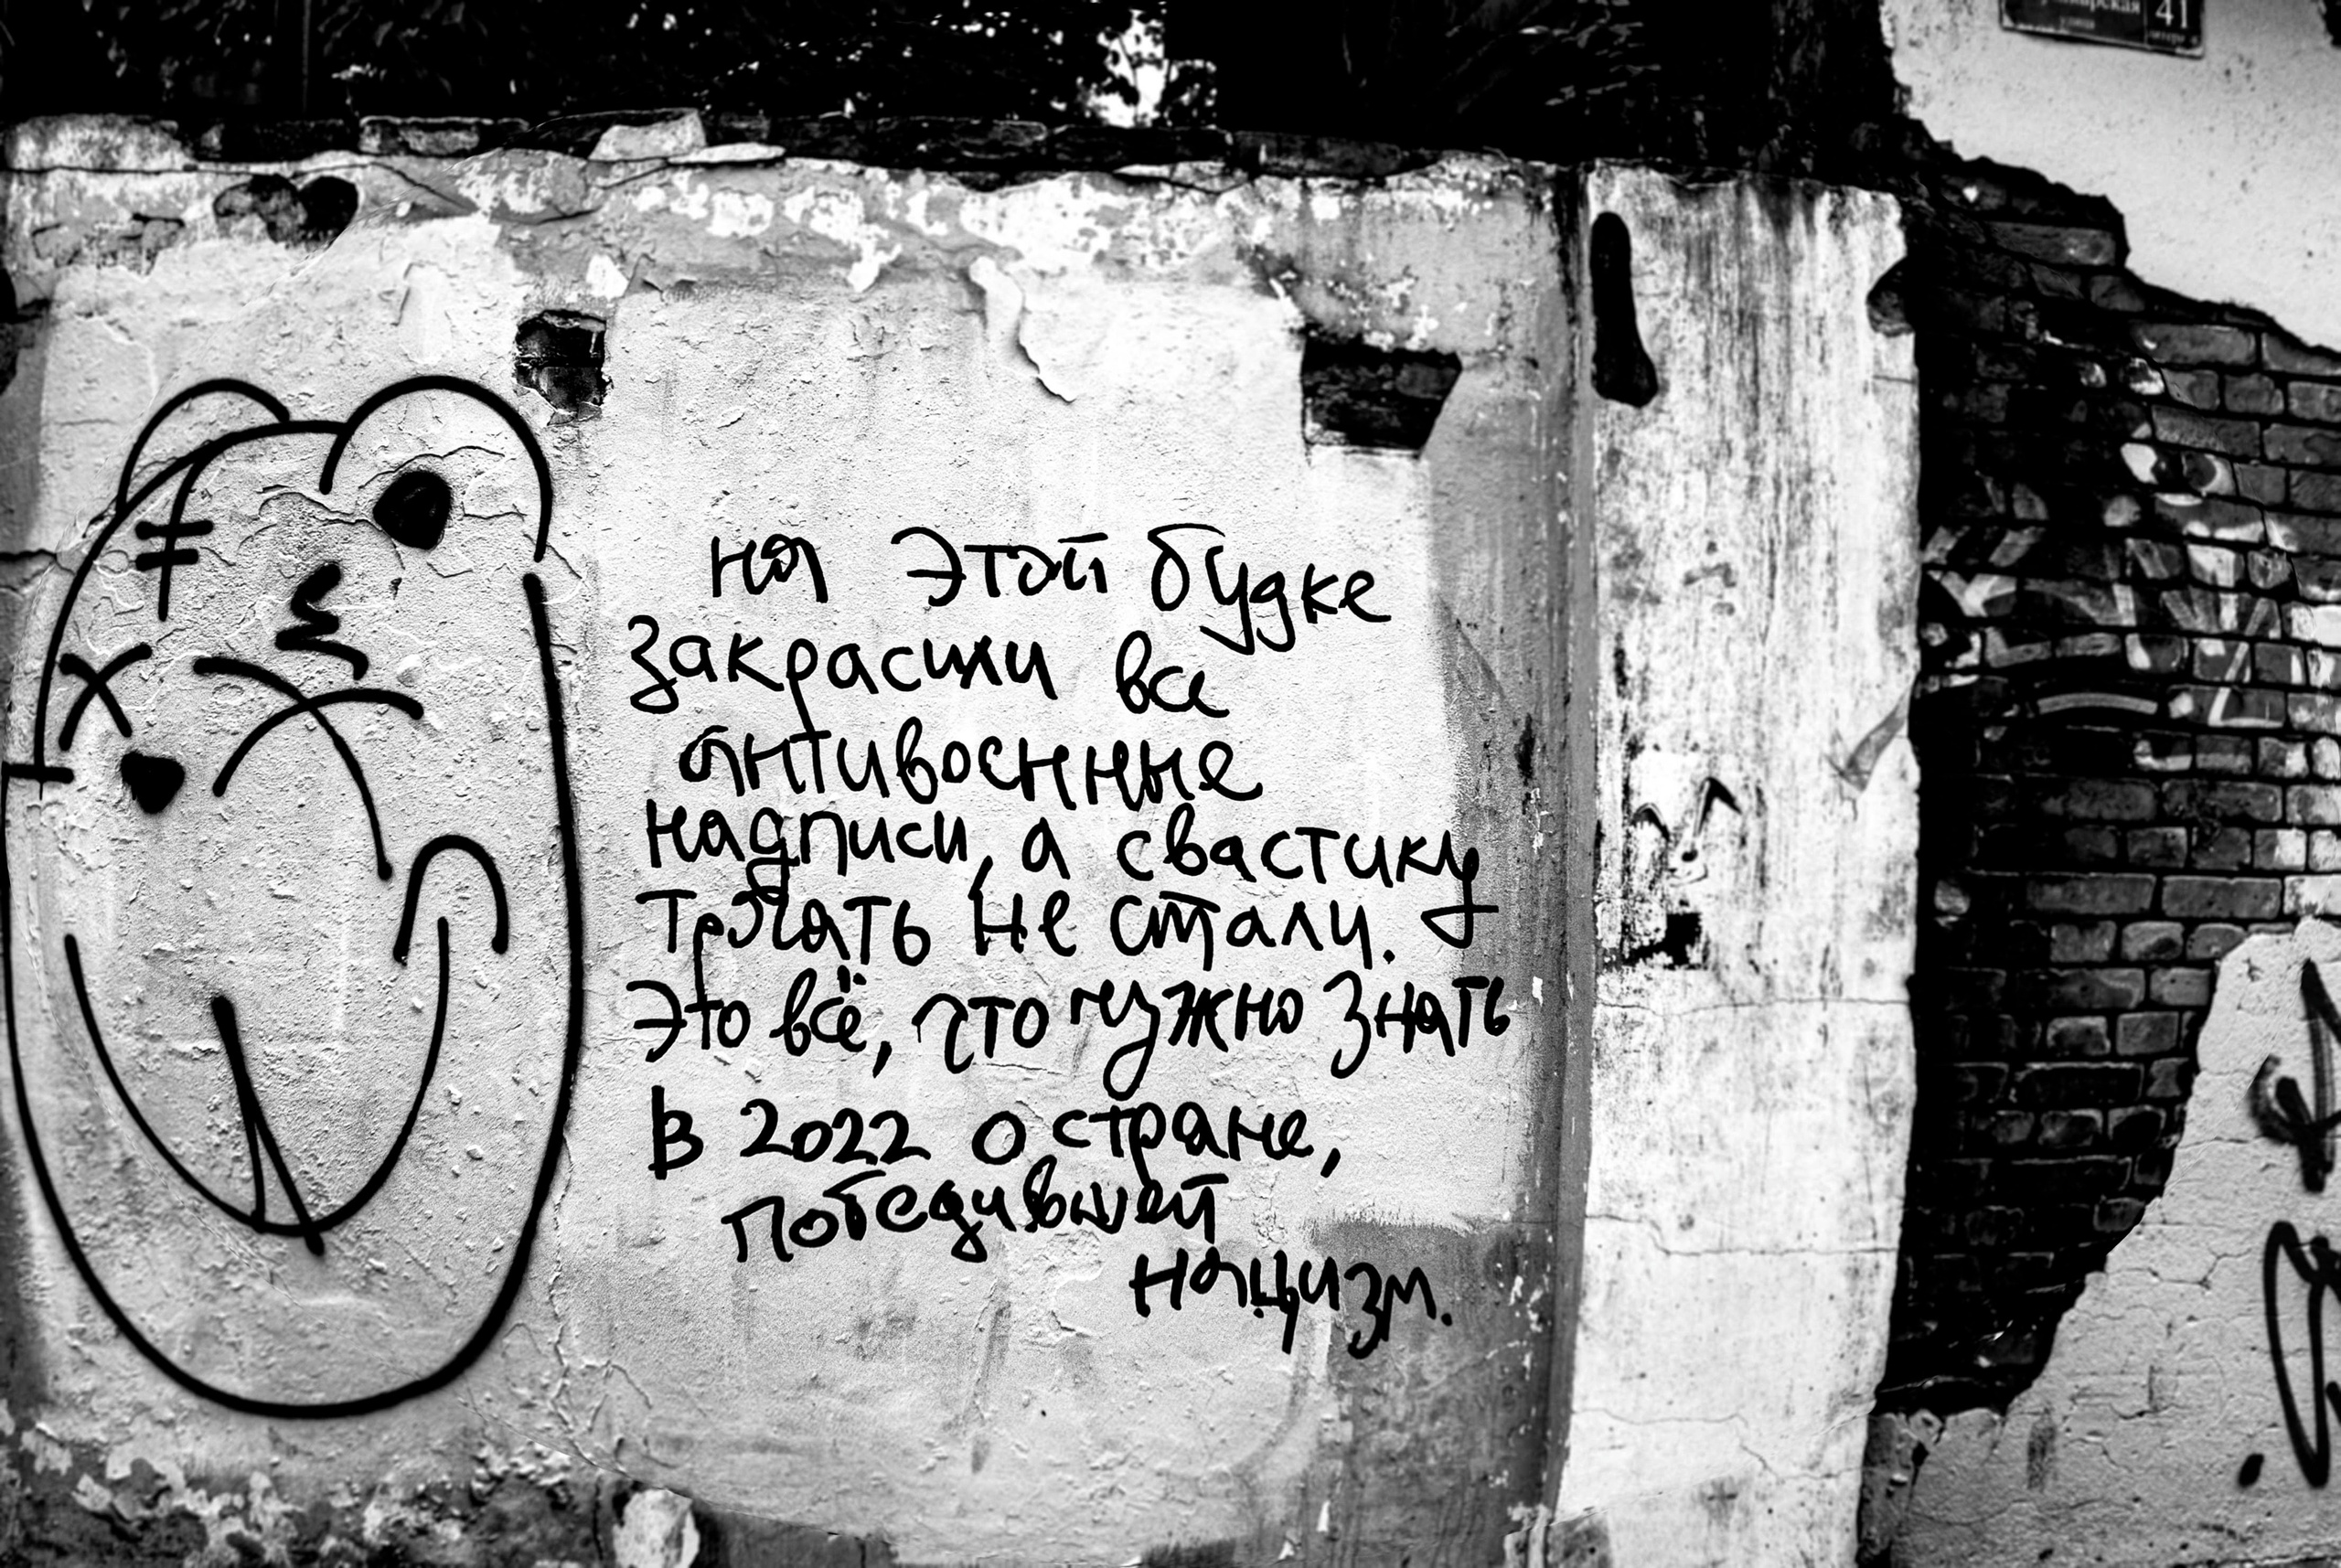 41
на этой будке
закрасили все
антивоенные
надписи, а свастику
трогать не стали.
Это всё, что нужно знать
в 2022 о стране,
победившей
нацизм.